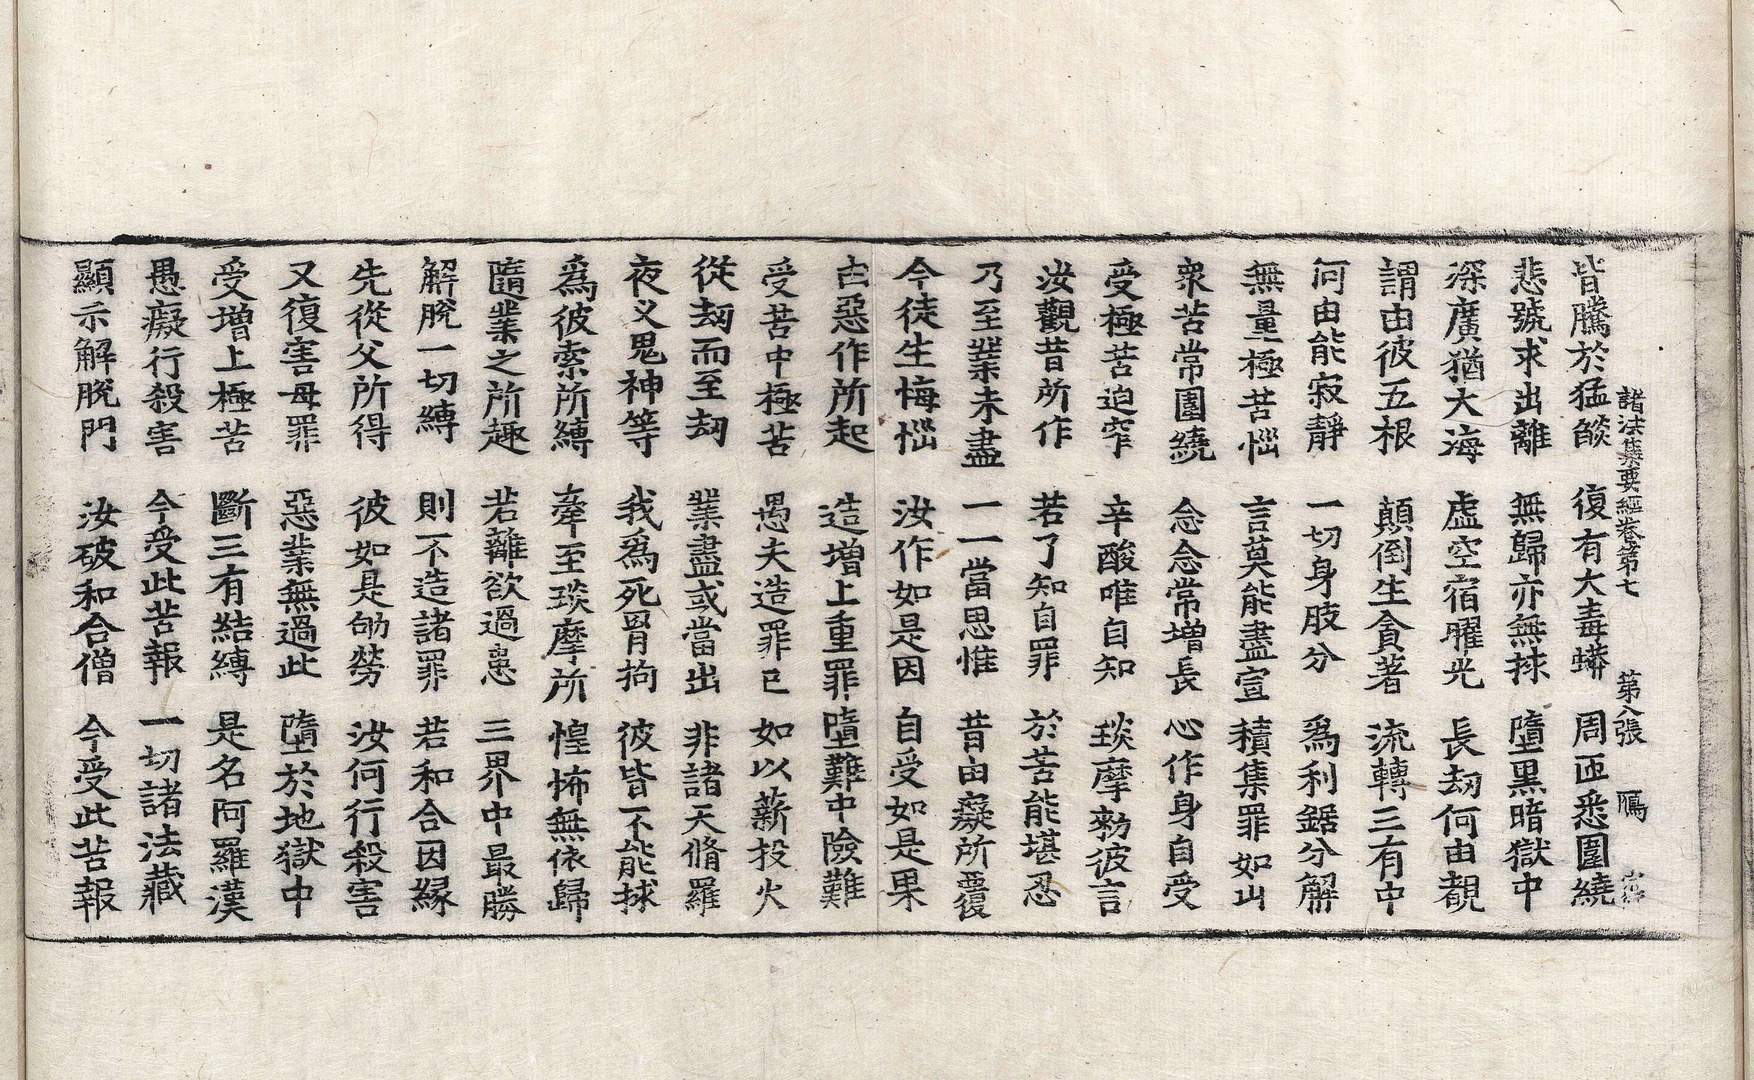 諸法集要經卷第七　第八張　鴈
皆騰於猛燄　復有大毒蟒　周匝悉圍繞
悲號求出離　無歸亦無捄　墮黑暗獄中
深廣猶大海　虛空宿曜光　長劫何由覩
謂由彼五根　顛倒生貪著　流轉三有中
何由能寂靜　一切身肢分　爲利鋸分解
無量極苦惱　言莫能盡宣　積集罪如山
衆苦常圍繞　念念常增長　心作身自受
受極苦迫窄　辛酸唯自知　琰摩勑彼言
汝觀昔所作　若了知自罪　於苦能堪忍
乃至業未盡　一一當思惟　昔由癡所覆
今徒生悔惱　汝作如是因　自受如是果
由惡作所起　造增上重罪　墮難中險難
受苦中極苦　愚夫造罪已　如以薪投火
從劫而至劫　業盡或當出　非諸天脩羅
夜叉鬼神等　我爲死罥拘　彼皆不能捄
爲彼索所縛　牽至琰摩所　惶怖無依歸
隨業之所趣　若離欲過患　三界中最勝
解脫一切縛　則不造諸罪　若和合因緣
先從父所得　彼如是劬勞　汝何行殺害
又復害母罪　惡業無過此　墮於地獄中
受增上極苦　斷三有結縛　是名阿羅漢
愚癡行殺害　今受此苦報　一切諸法藏
顯示解脫門　汝破和合僧　今受此苦報